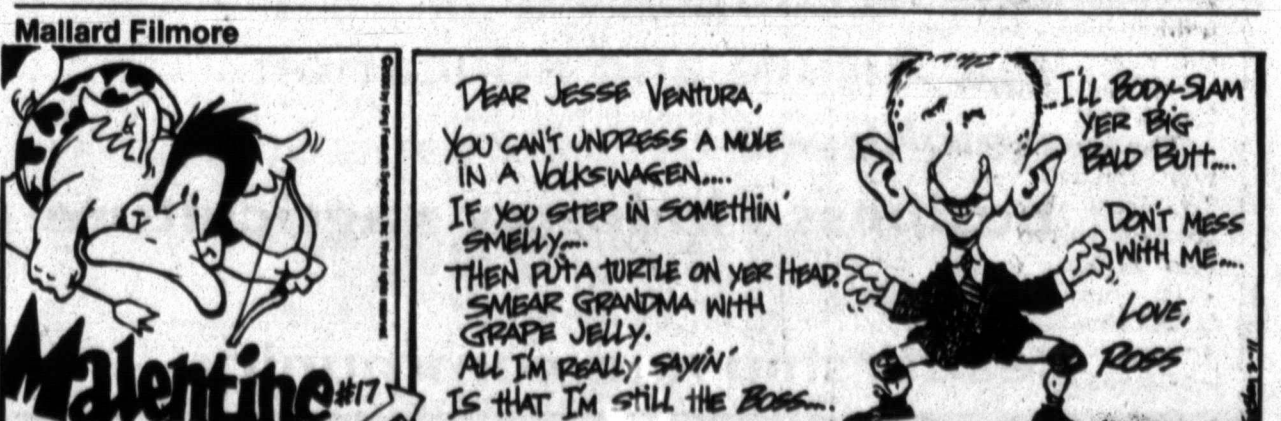 Mallard Filmore
Malentine #17
DEAR JESSE VENTURA,
YOU CAN'T UNDRESS A MULE
IN A VOLKSWAGEN....
IF YOU STEP IN SOMETHIN'
SMELLY....
THEN PUT A TURTLE ON YER HEAD.
SMEAR GRANDMA WITH
GRAPE JELLY.
ALL I'M REALLY SAYIN'
IS THAT I'M STILL THE BOSS....
...I'LL BODY-SLAM
YER BIG
BALD BUTT....
DON'T MESS
WITH ME....
LOVE,
ROSS
2-11